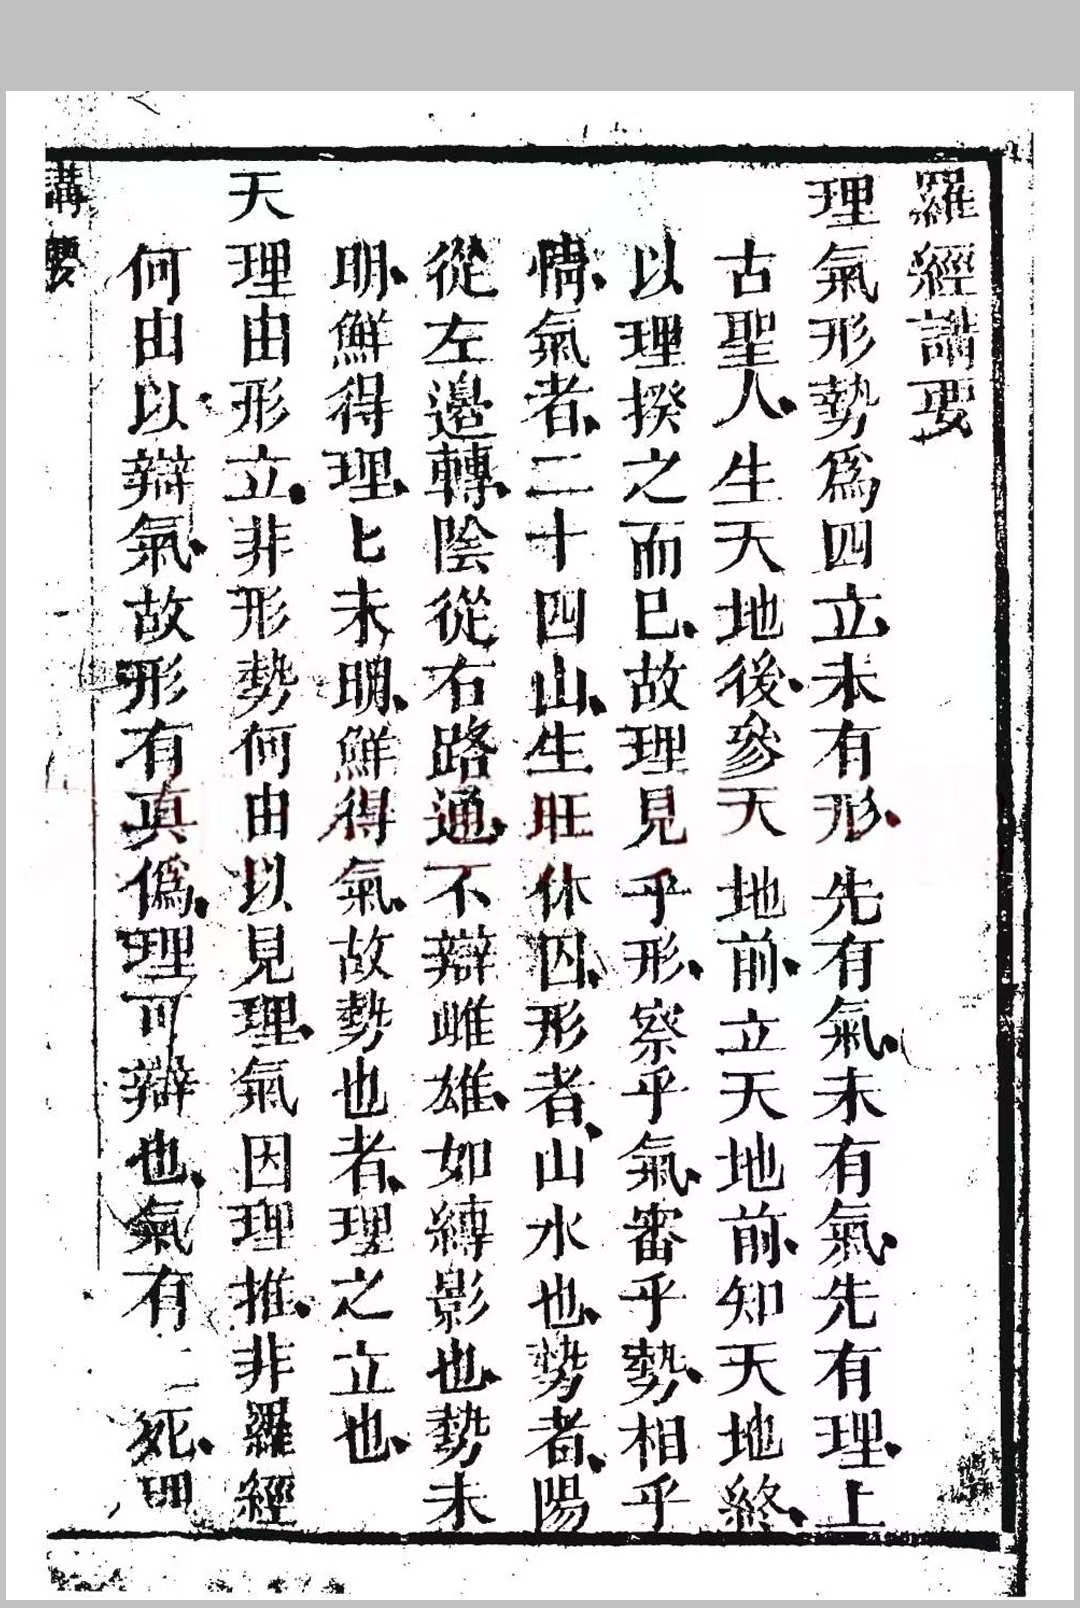 羅經講要
理氣形勢爲四立未有形先有氣未有氣先有理上
古聖人生天地後參天地前立天地前知天地終
以理揆之而已故理見乎形察乎氣審乎勢相乎
情氣者二十四山生旺休囚形者山水也勢者陽
從左邊轉陰從右路通不辯雌雄如縛影也勢未
明鮮得理匕未明鮮得氣故勢也者理之立也
天理由形立非形勢何由以見理氣因理推非羅經
何由以辯氣故形有真僞理可辯也氣有 死
講要